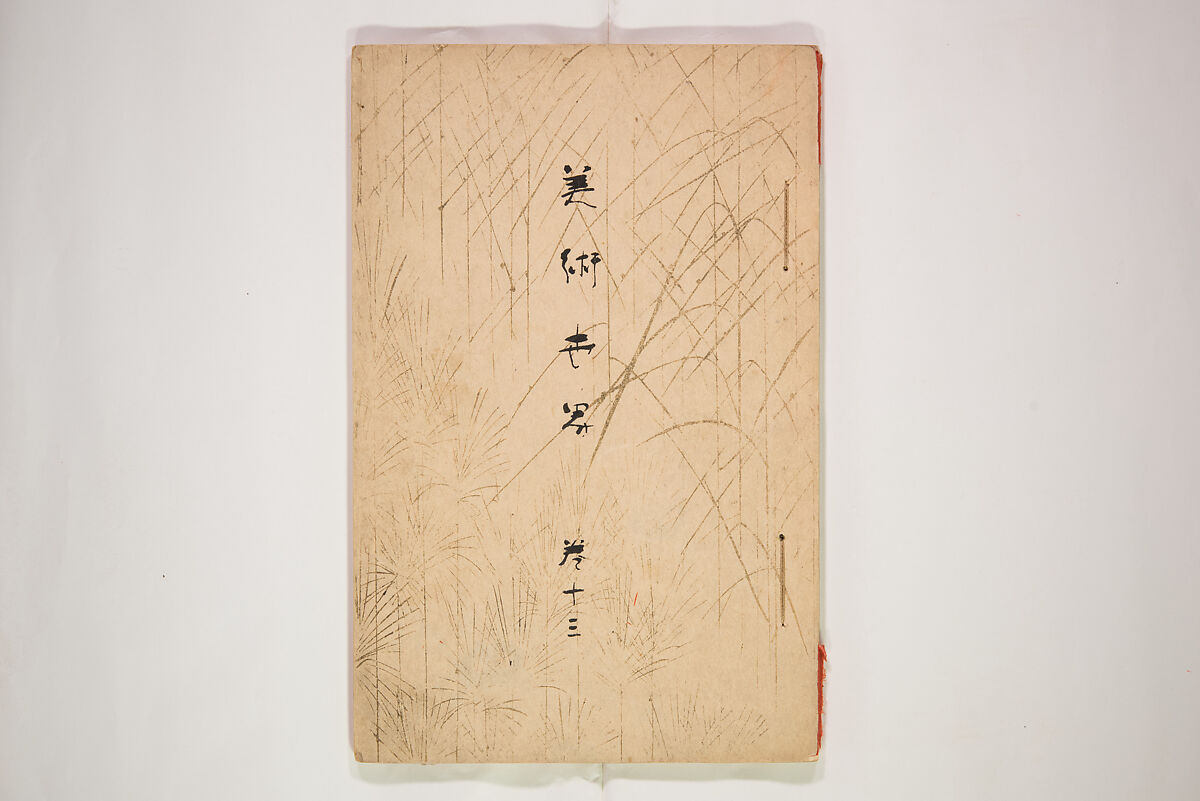 美術世界 巻十三